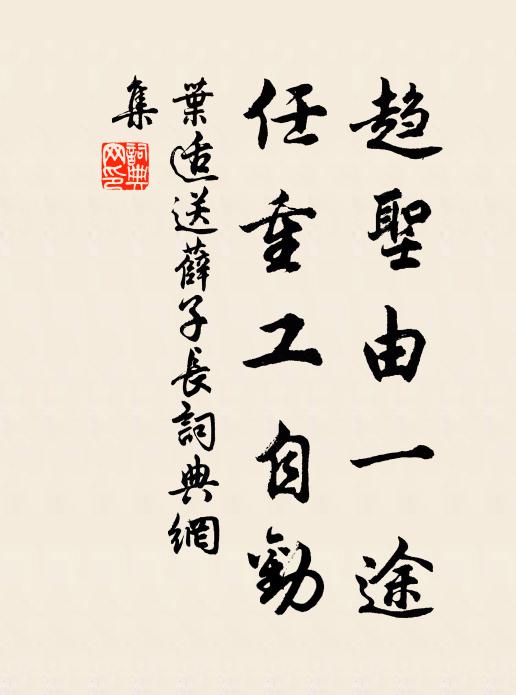 趨聖由一途
任重工自勤
葉适送薛子長詞典網
集
詞典
网印